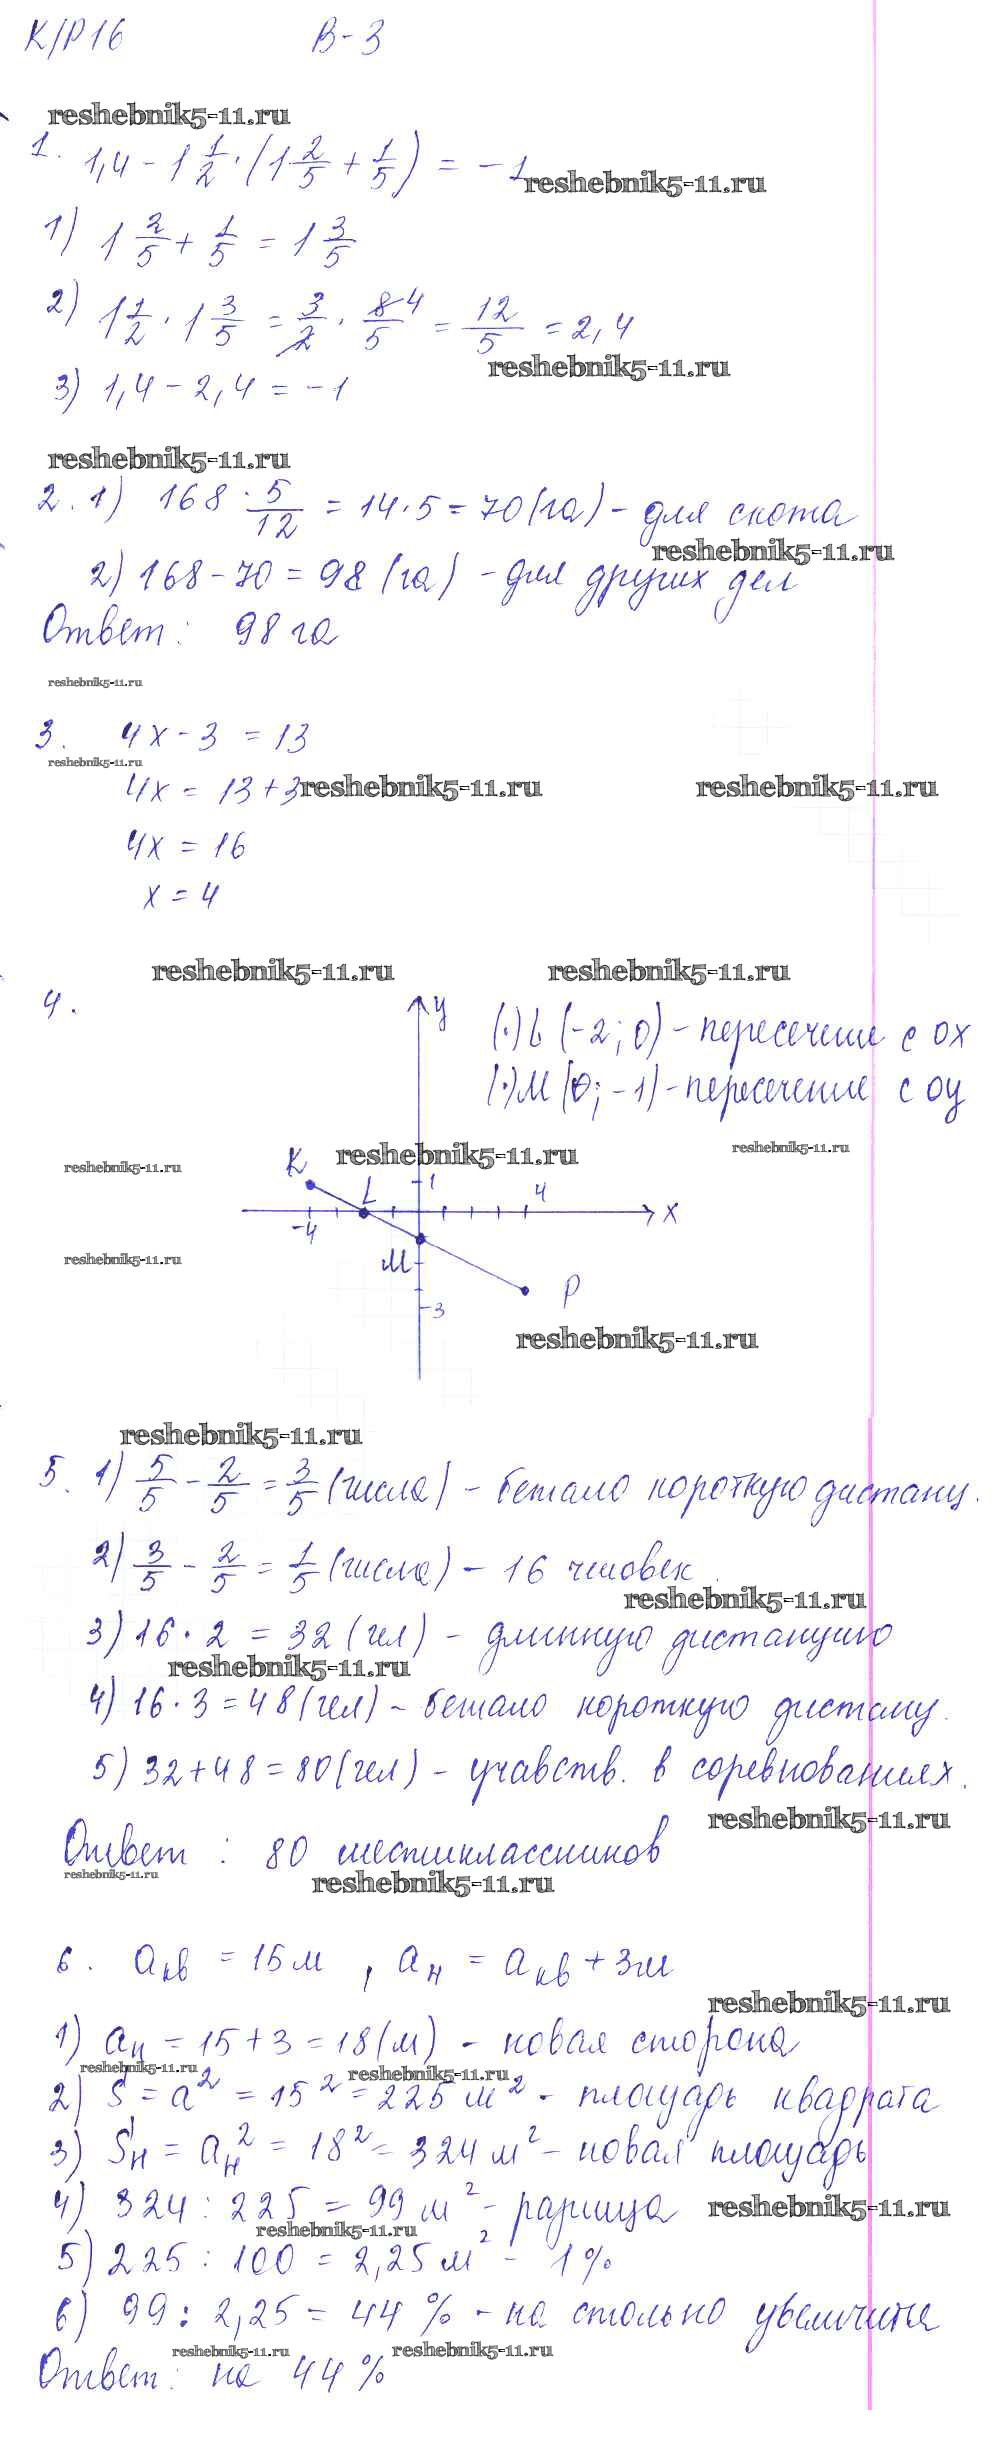 К/Р16 В-3
reshebnik5-11.ru
1. 1,4 - 1 1/2 · (1 2/5 + 1/5) = -1
reshebnik5-11.ru
1) 1 2/5 + 1/5 = 1 3/5
2) 1 1/2 · 1 3/5 = 3/2 · 8/5 4 = 12/5 = 2,4
reshebnik5-11.ru
3) 1,4 - 2,4 = -1
reshebnik5-11.ru
2. 1) 168 · 5/12 = 14 · 5 = 70 (га) - для скота
reshebnik5-11.ru
2) 168 - 70 = 98 (га) - для других дел
Ответ: 98 га
reshebnik5-11.ru
3. 4x - 3 = 13
reshebnik5-11.ru
4x = 13 + 3
reshebnik5-11.ru reshebnik5-11.ru
4x = 16
x = 4
reshebnik5-11.ru reshebnik5-11.ru
4. y (·) L (-2; 0) - пересечение с ox
(·) M (0; -1) - пересечение с oy
reshebnik5-11.ru
K reshebnik5-11.ru
reshebnik5-11.ru
L 1 4
-4 x
reshebnik5-11.ru M
P
-3
reshebnik5-11.ru
reshebnik5-11.ru
5. 1) 5/5 - 2/5 = 3/5 (числа) - бежало короткую дистанц.
2) 3/5 - 2/5 = 1/5 (числа) - 16 человек
reshebnik5-11.ru
3) 16 · 2 = 32 (чел) - длинную дистанцию
reshebnik5-11.ru
4) 16 · 3 = 48 (чел) - бежало короткую дистанц.
5) 32 + 48 = 80 (чел) - учавств. в соревнованиях.
reshebnik5-11.ru
Ответ: 80 шестиклассников
reshebnik5-11.ru
reshebnik5-11.ru
6. aкв = 15 м, aн = aкв + 3м
reshebnik5-11.ru
1) aн = 15 + 3 = 18 (м) - новая сторона
reshebnik5-11.ru reshebnik5-11.ru
2) S = a² = 15² = 225 м² - площадь квадрата
3) Sн = aн² = 18² = 324 м² - новая площадь
4) 324 : 225 = 99 м² - разница
reshebnik5-11.ru
reshebnik5-11.ru
5) 225 : 100 = 2,25 м² - 1%
6) 99 : 2,25 = 44 % - на столько увеличите
reshebnik5-11.ru reshebnik5-11.ru
Ответ: на 44 %